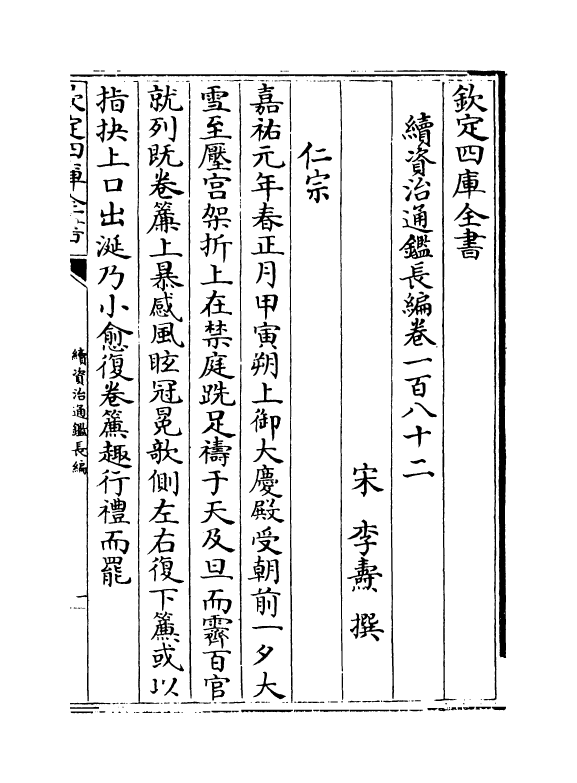 欽定四庫全書
續資治通鑑長編卷一百八十二
宋 李燾 撰
仁宗
嘉祐元年春正月甲寅朔上御大慶殿受朝前一夕大
雪至壓宫架折上在禁庭跣足禱于天及旦而霽百官
就列既卷簾上暴感風眩冠冕欹側左右復下簾或以
指抉上口出涎乃小愈復卷簾趣行禮而罷
欽定四庫全書
續資治通鑑長編
一